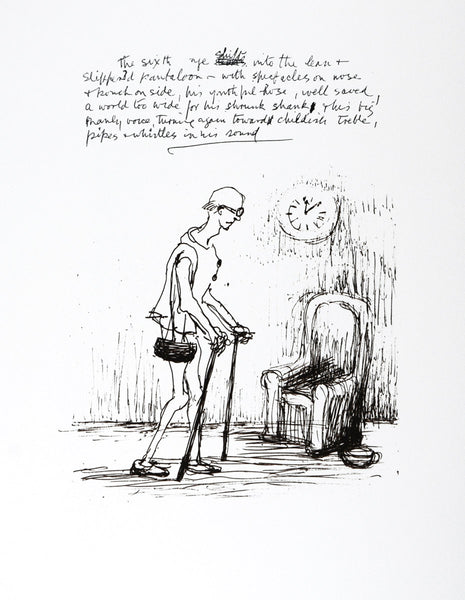 the sixth age shifts into the lean +
slipper'd pantaloon - with spectacles on nose
+ pouch on side, his youthful hose, well saved,
a world too wide for his shrunk shank, + his big
manly voice, turning again toward childish treble,
pipes + whistles in his sound